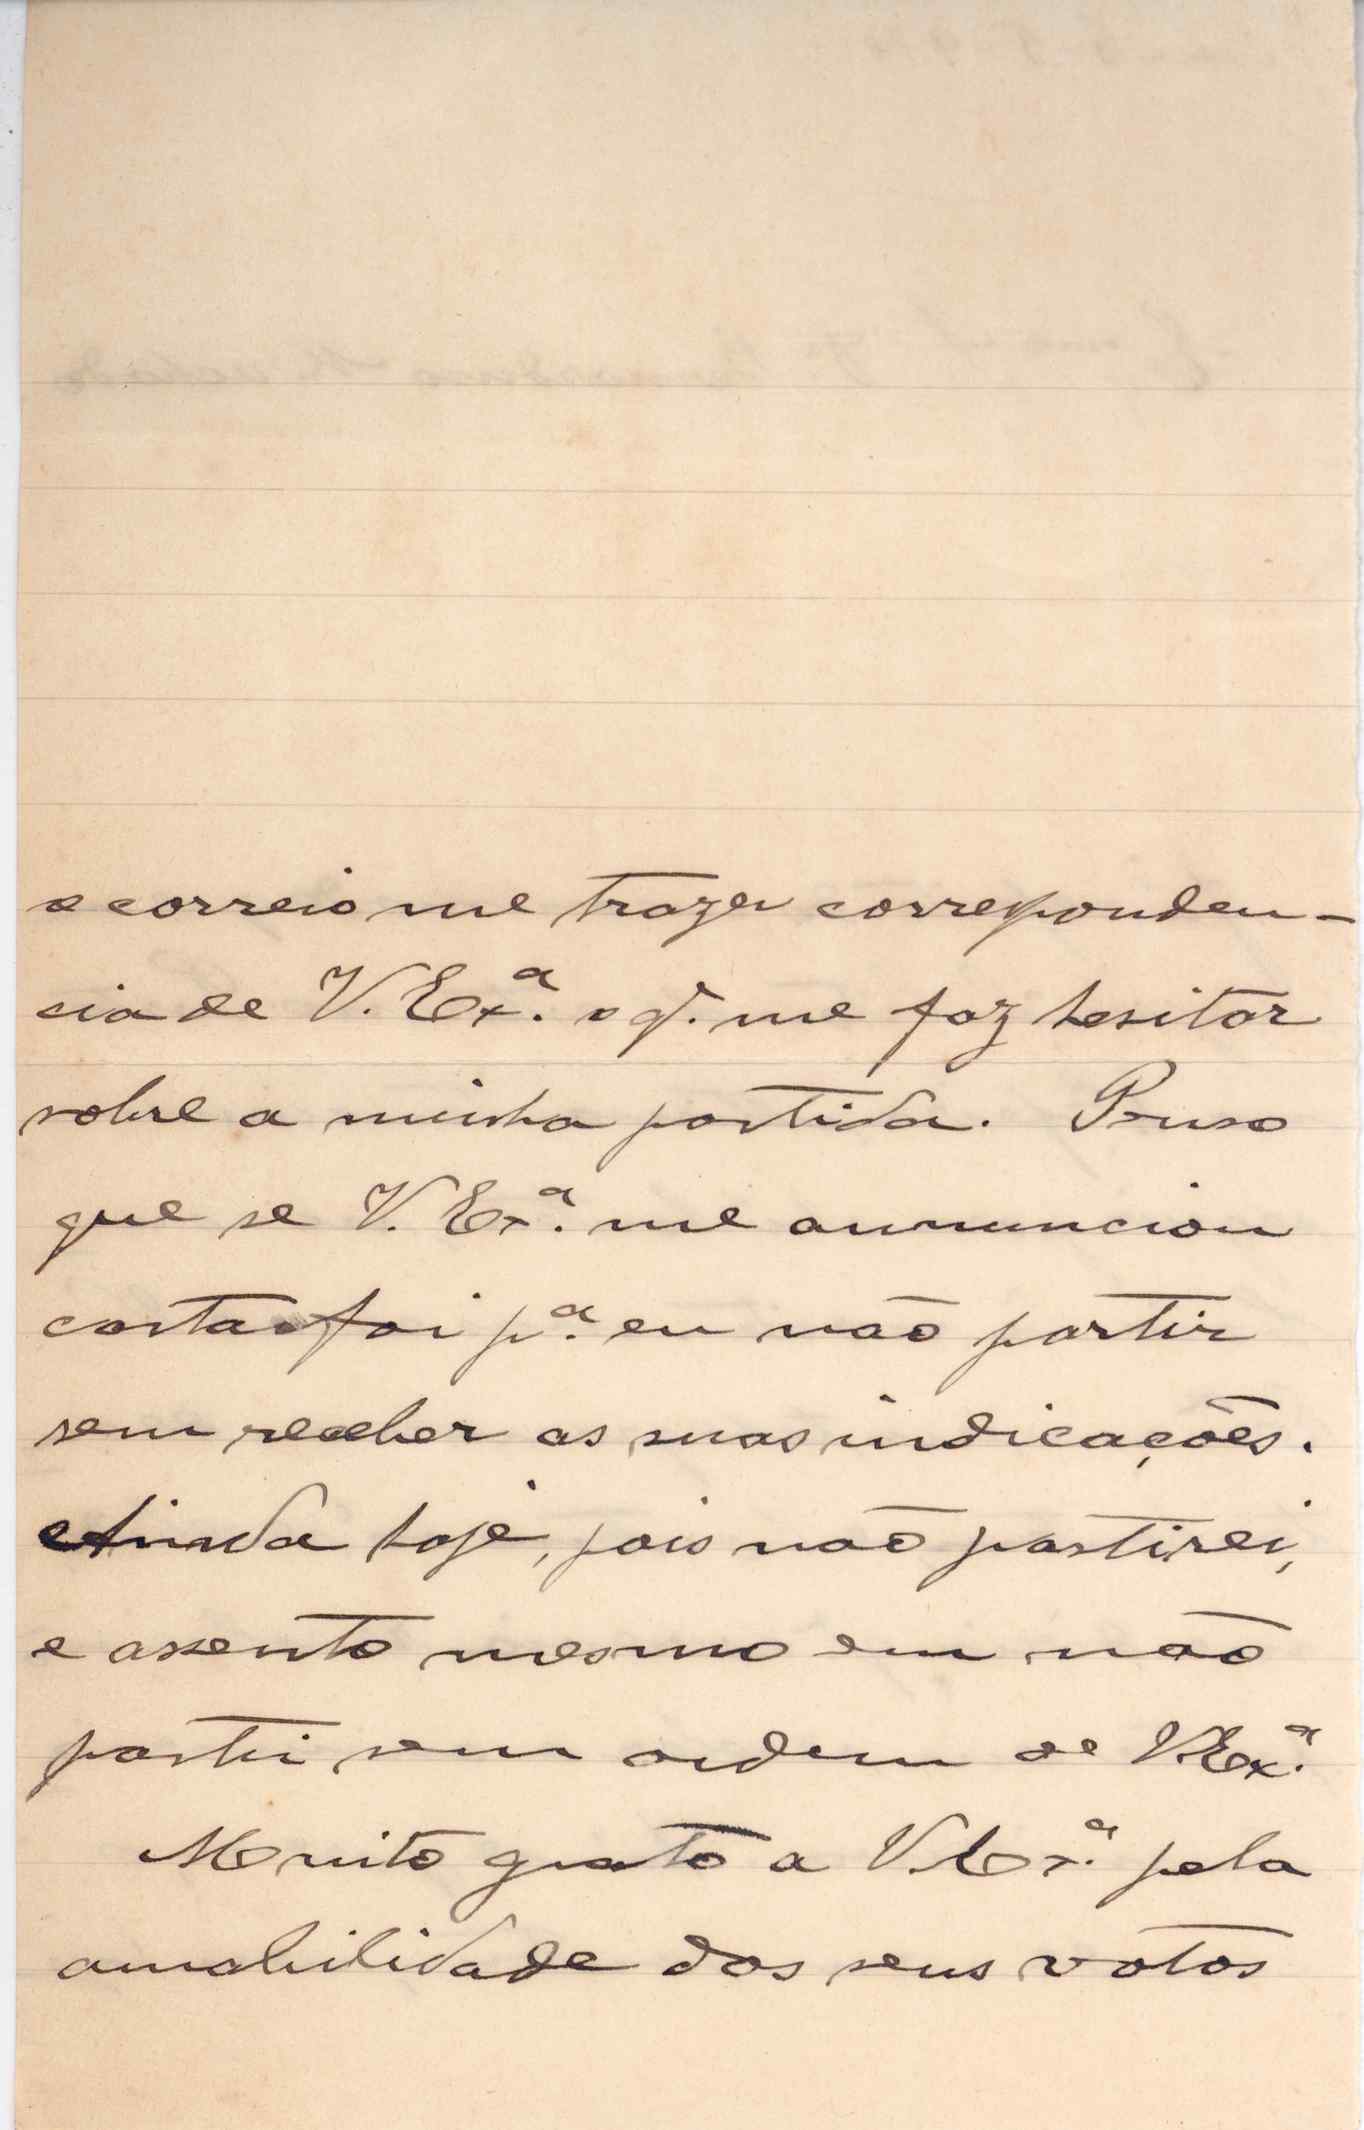 o correio me trazer corresponden-
cia de V. Exª. o q. me faz hesitar
sobre a minha partida. Penso
que se V. Exª. me annunciou
carta foi pª. eu não partir
sem receber as suas indicações.
Ainda hoje, pois não partirei,
e assento mesmo em não
partir sem ordem de V. Exª.
Muito grato a V. Exª. pela
amabilidade dos seus votos